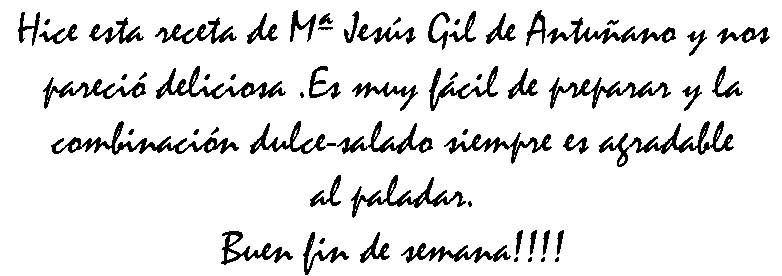 Hice esta receta de Mª Jesús Gil de Antuñano y nos
pareció deliciosa .Es muy fácil de preparar y la
combinación dulce-salado siempre es agradable
al paladar.
Buen fin de semana!!!!